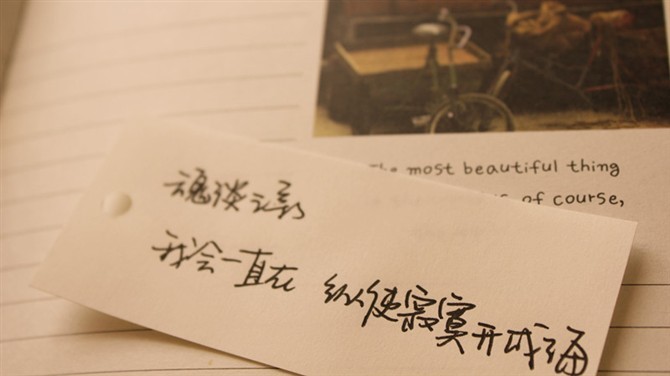 most beautiful thing
of course,
魂淡
我会一直在 纵使寂寞开成海